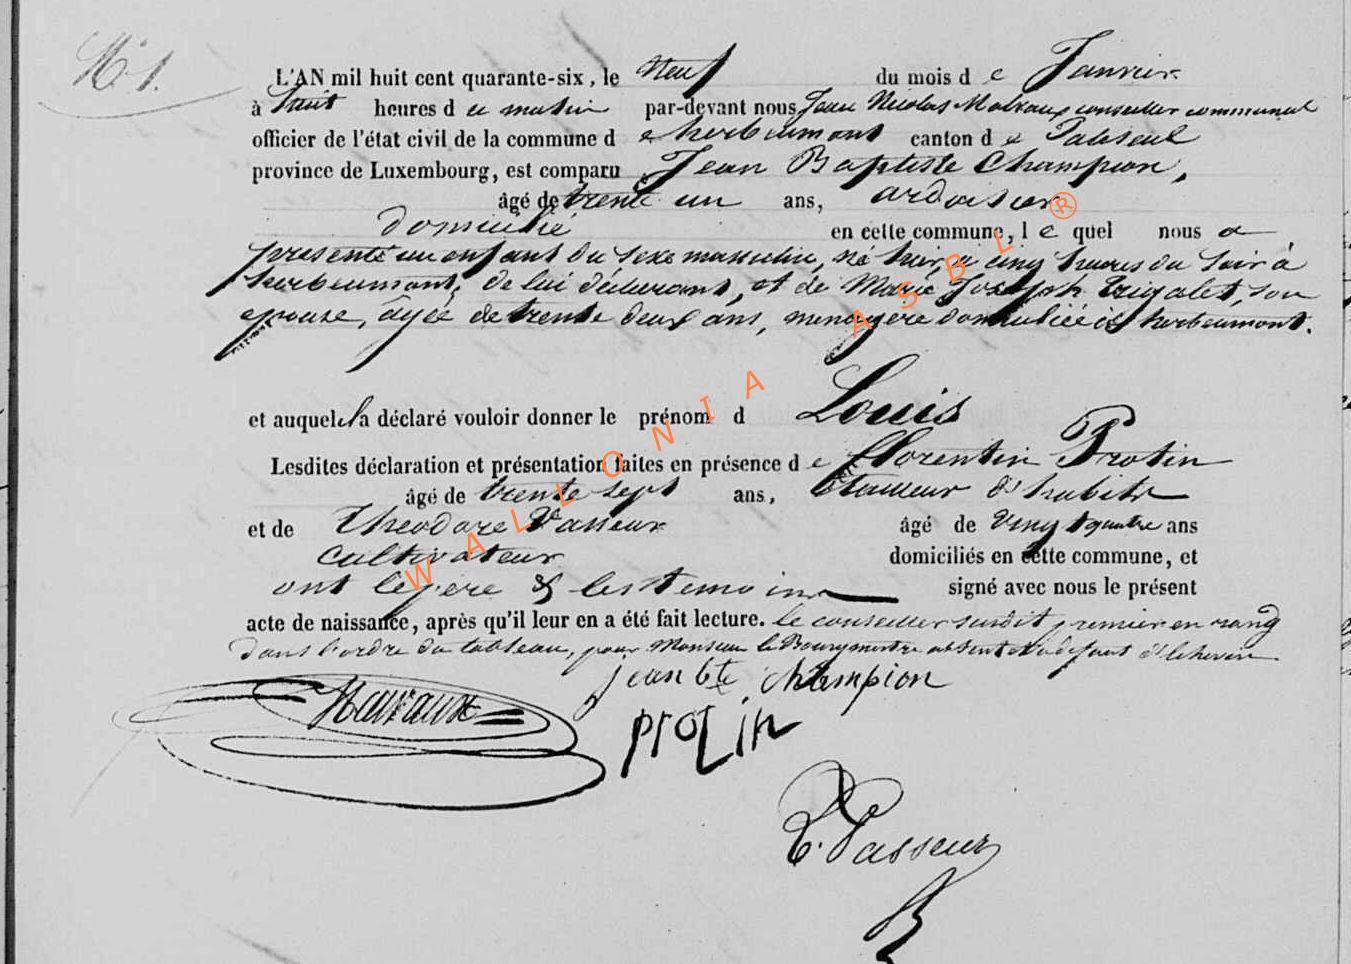 N° 1.
L'AN mil huit cent quarante-six, le Neuf du mois d e Janvier
à huit heures d u matin par-devant nous Jean Nicolas Maraux conseiller communal
officier de l'état civil de la commune d e herbeumont canton d e Paliseul
province de Luxembourg, est comparu Jean Baptiste Champion,
âgé de trente un ans, ardoisier
domicilié en cette commune, l e quel nous a
présenté un enfant du sexe masculin, né hier, à cinq heures du soir à
herbeumont, de lui déclarant, et de Marie Joseph Trigalet, son
épouse, âgée de trente deux ans, ménagère domiciliée à herbeumont.
et auquel il a déclaré vouloir donner le prénom d Louis
Lesdites déclaration et présentation faites en présence d e florentin Protin
âgé de trente sept ans, tailleur d'habits
et de Théodore Vasseur âgé de vingt quatre ans
cultivateur domiciliés en cette commune, et
ont le père & les temoins signé avec nous le présent
acte de naissance, après qu'il leur en a été fait lecture. le conseiller susdit premier en rang
dans l'ordre du tableau, pour Monsieur le Bourgmestre absent et à défaut d'échevin
jean bte champion
Maraux
protin
T. Vasseur
WALLONIA ASBL ®